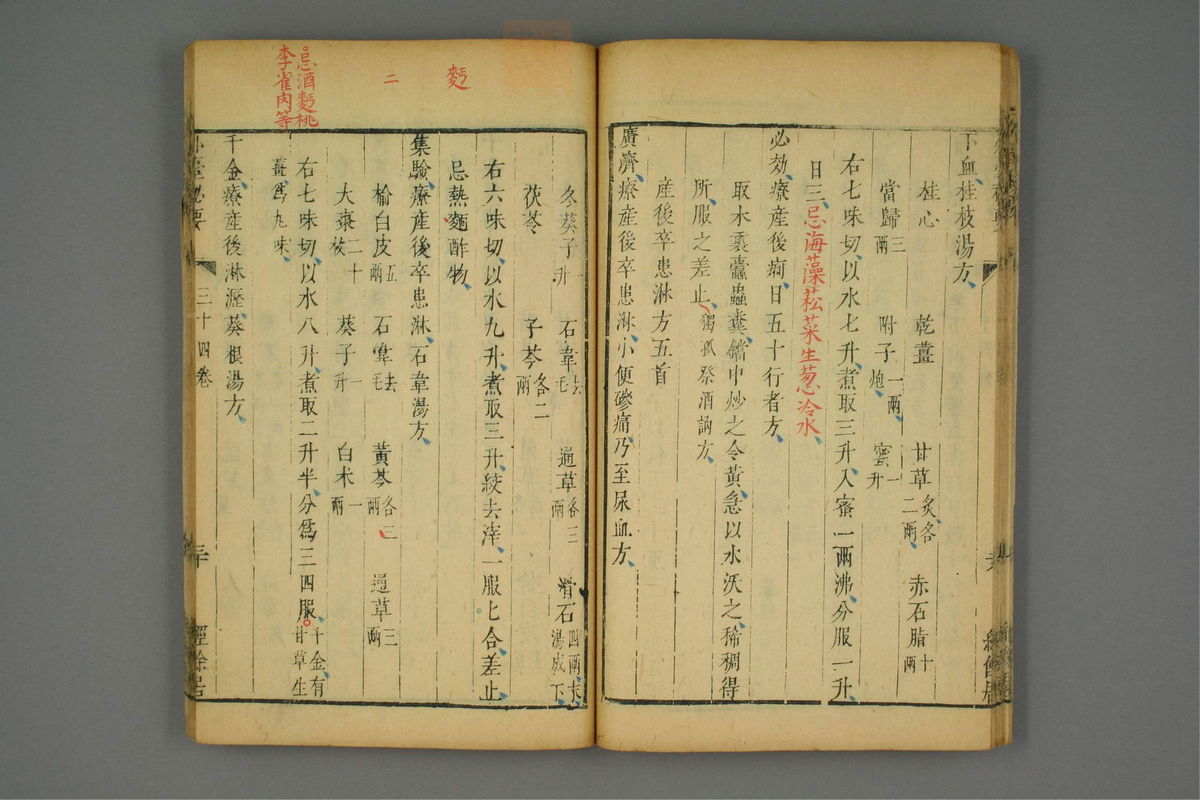 下血桂枝湯方
桂心 乾薑 甘草炙各二兩 赤石脂十兩
當歸三兩 附子一兩炮 蜜一升
右七味切以水七升煮取三升入蜜一兩沸分服一升
日三忌海藻菘菜生葱冷水
必効療産後痢日五十行者方
取木裏蠹蟲糞鐺中炒之令黃急以水沃之稀稠得
所服之差止獨孤祭酒訥方
産後卒患淋方五首
廣濟療産後卒患淋小便磣痛乃至尿血方
冬葵子一升 石韋去毛 通草各三兩 滑石四兩末湯成下
茯苓 子芩各二兩
右六味切以水九升煮取三升絞去滓一服七合差止
忌熱麵酢物
集驗療産後卒患淋石韋湯方
榆白皮五兩 石韋去毛 黃芩各二兩 通草三兩
大棗二十枚 葵子一升 白朮一兩
右七味切以水八升煮取二升半分爲三四服千金有甘草生
薑爲九味
千金療産後淋瀝葵根湯方
三十四卷
二十
經餘居
麪
二
忌酒麪桃
李雀肉等